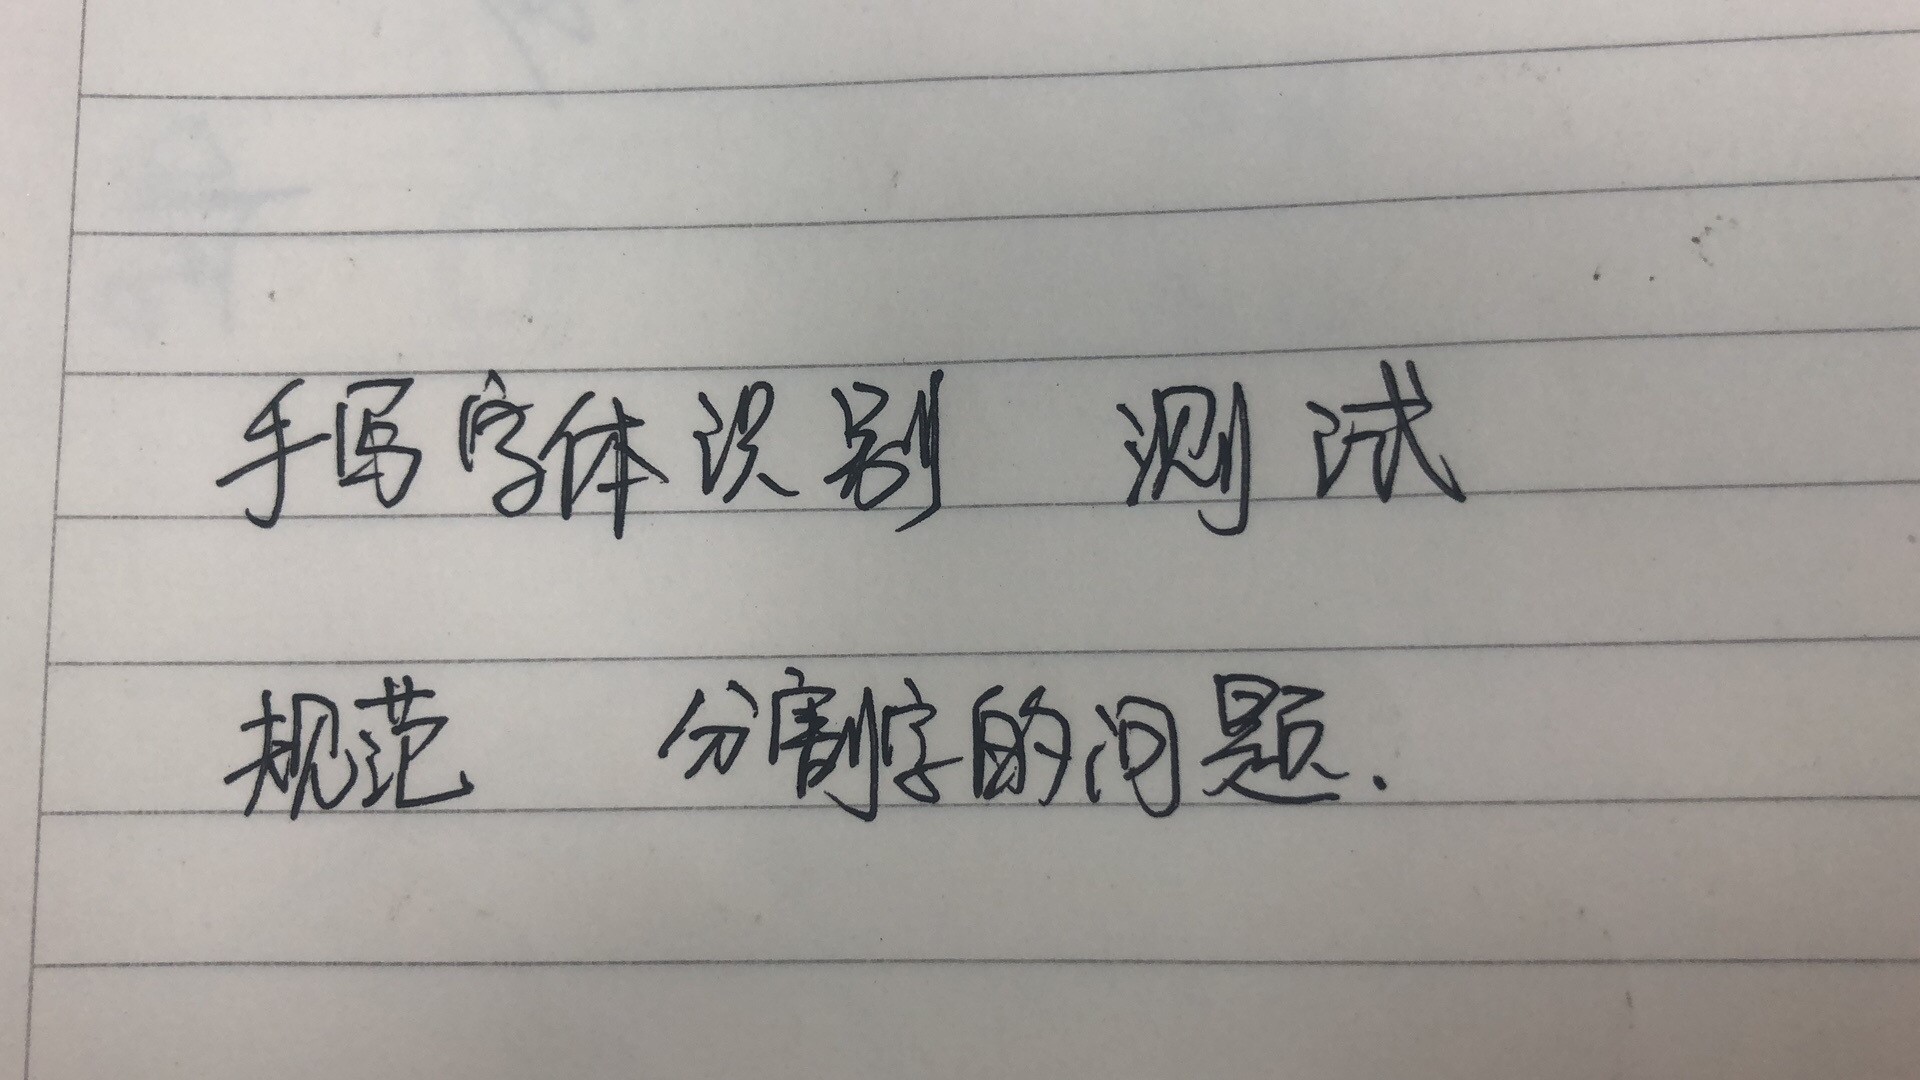 手写字体识别 测试
规范 分割字的问题.